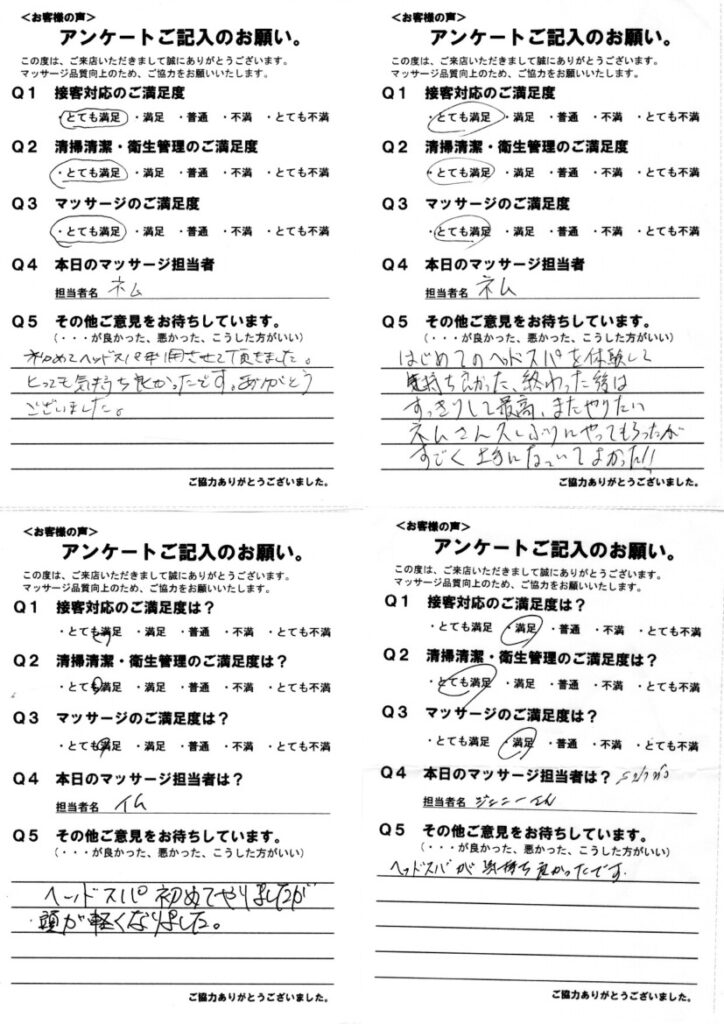 <お客様の声>
アンケートご記入のお願い。
この度は、ご来店いただきまして誠にありがとうございます。
マッサージ品質向上のため、ご協力をお願いいたします。
Q1 接客対応のご満足度
・とても満足 ・満足 ・普通 ・不満 ・とても不満
Q2 清掃清潔・衛生管理のご満足度
・とても満足 ・満足 ・普通 ・不満 ・とても不満
Q3 マッサージのご満足度
・とても満足 ・満足 ・普通 ・不満 ・とても不満
Q4 本日のマッサージ担当者
担当者名 ネム
Q5 その他ご意見をお待ちしています。
(・・・が良かった、悪かった、こうした方がいい)
初めてヘッドスパ利用させて頂きました。
とっても気持ち良かったです。ありがとう
ございました。
ご協力ありがとうございました。
<お客様の声>
アンケートご記入のお願い。
この度は、ご来店いただきまして誠にありがとうございます。
マッサージ品質向上のため、ご協力をお願いいたします。
Q1 接客対応のご満足度
・とても満足 ・満足 ・普通 ・不満 ・とても不満
Q2 清掃清潔・衛生管理のご満足度
・とても満足 ・満足 ・普通 ・不満 ・とても不満
Q3 マッサージのご満足度
・とても満足 ・満足 ・普通 ・不満 ・とても不満
Q4 本日のマッサージ担当者
担当者名 ネム
Q5 その他ご意見をお待ちしています。
(・・・が良かった、悪かった、こうした方がいい)
はじめてのヘッドスパを体験して
気持ち良かった、終わった後は
すっきりして最高、またやりたい
ネムさん久しぶりにやってもらったが
すごく上手になっていてよかった!!
ご協力ありがとうございました。
<お客様の声>
アンケートご記入のお願い。
この度は、ご来店いただきまして誠にありがとうございます。
マッサージ品質向上のため、ご協力をお願いいたします。
Q1 接客対応のご満足度は?
・とても満足 ・満足 ・普通 ・不満 ・とても不満
Q2 清掃清潔・衛生管理のご満足度は?
・とても満足 ・満足 ・普通 ・不満 ・とても不満
Q3 マッサージのご満足度は?
・とても満足 ・満足 ・普通 ・不満 ・とても不満
Q4 本日のマッサージ担当者は?
担当者名 イム
Q5 その他ご意見をお待ちしています。
(・・・が良かった、悪かった、こうした方がいい)
ヘッドスパ初めてやりましたが
頭が軽くなりました。
ご協力ありがとうございました。
<お客様の声>
アンケートご記入のお願い。
この度は、ご来店いただきまして誠にありがとうございます。
マッサージ品質向上のため、ご協力をお願いいたします。
Q1 接客対応のご満足度は?
・とても満足 ・満足 ・普通 ・不満 ・とても不満
Q2 清掃清潔・衛生管理のご満足度は?
・とても満足 ・満足 ・普通 ・不満 ・とても不満
Q3 マッサージのご満足度は?
・とても満足 ・満足 ・普通 ・不満 ・とても不満
Q4 本日のマッサージ担当者は?
担当者名 ジェニーさん
Q5 その他ご意見をお待ちしています。
(・・・が良かった、悪かった、こうした方がいい)
ヘッドスパが気持ち良かったです.
ご協力ありがとうございました。